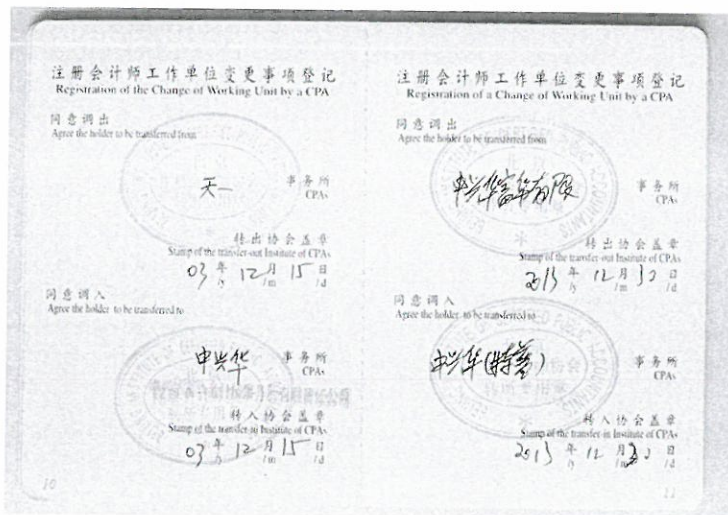 注册会计师工作单位变更事项登记
Registration of the Change of Working Unit by a CPA
同意调出
Agree the holder to be transferred from
天一 事务所
CPAs
转出协会盖章
Stamp of the transfer-out Institute of CPAs
03 年 12 月 15 日
/y /m /d
同意调入
Agree the holder to be transferred to
中兴华 事务所
CPAs
转入协会盖章
Stamp of the transfer-in Institute of CPAs
03 年 12 月 15 日
/y /m /d
10
注册会计师工作单位变更事项登记
Registration of a Change of Working Unit by a CPA
同意调出
Agree the holder to be transferred from
中兴华富华有限 事务所
CPAs
转出协会盖章
Stamp of the transfer-out Institute of CPAs
2013 年 12 月 30 日
/y /m /d
同意调入
Agree the holder to be transferred to
中兴华(特普) 事务所
CPAs
转入协会盖章
Stamp of the transfer-in Institute of CPAs
2013 年 12 月 30 日
/y /m /d
11